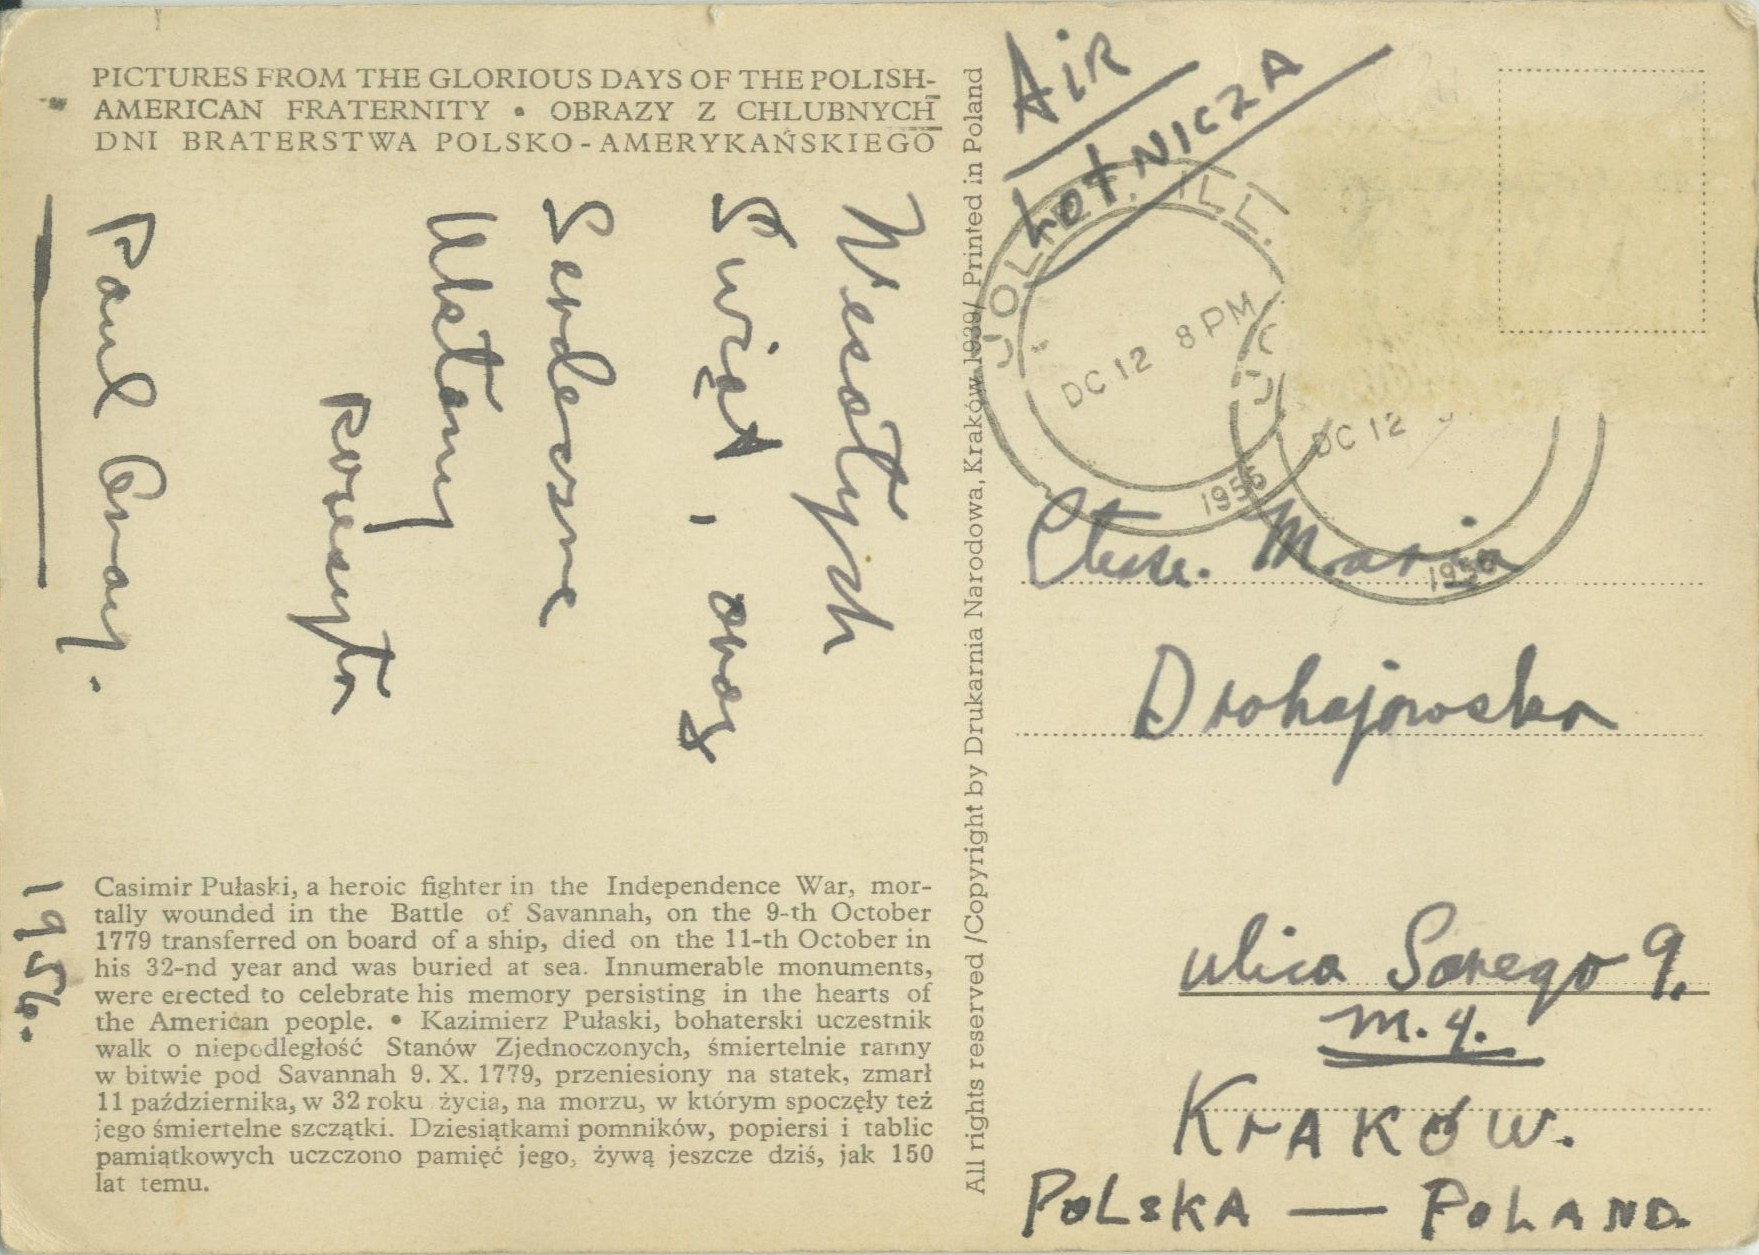 PICTURES FROM THE GLORIOUS DAYS OF THE POLISH-
AMERICAN FRATERNITY • OBRAZY Z CHLUBNYCH
DNI BRATERSTWA POLSKO-AMERYKAŃSKIEGO
Wesołych
Świąt, oraz
Serdeczne
Ukłony
Paul
1956.
Casimir Pułaski, a heroic fighter in the Independence War, mor-
tally wounded in the Battle of Savannah, on the 9-th October
1779 transferred on board of a ship, died on the 11-th October in
his 32-nd year and was buried at sea. Innumerable monuments,
were erected to celebrate his memory persisting in the hearts of
the American people. • Kazimierz Pułaski, bohaterski uczestnik
walk o niepodległość Stanów Zjednoczonych, śmiertelnie ranny
w bitwie pod Savannah 9. X. 1779, przeniesiony na statek, zmarł
11 października, w 32 roku życia, na morzu, w którym spoczęły też
jego śmiertelne szczątki. Dziesiątkami pomników, popiersi i tablic
pamiątkowych uczczono pamięć jego, żywą jeszcze dziś, jak 150
lat temu.
All rights reserved /Copyright by Drukarnia Narodowa, Kraków 1939/ Printed in Poland
AIR
LOTNICZA
JOLIET, ILL.
DC 12 8 PM
1956
DC 12
1956
Maria
Drohojowska
ulica Sarego 9.
m. 4.
KRAKÓW.
POLSKA — POLAND.